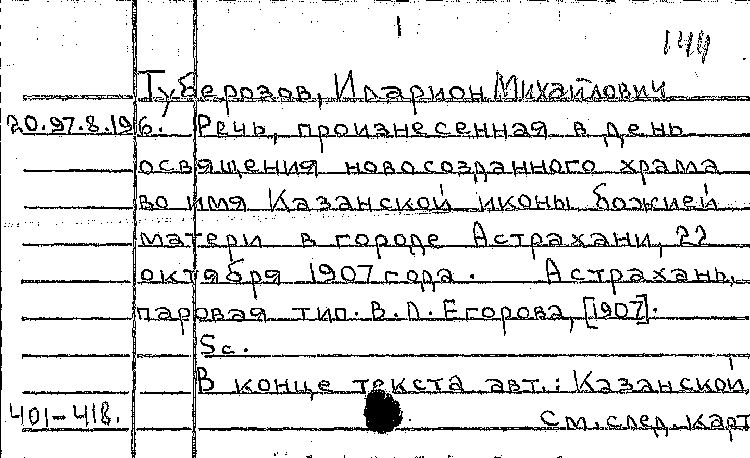 1
144
Туберозов, Иларион Михайлович
20.97.8.196. Речь, произнесенная в день
освящения новосозданного храма
во имя Казанской иконы божией
матери в городе Астрахани, 22
октября 1907 года. Астрахань,
паровая тип. В.Л. Егорова, [1907].
5с.
В конце текста авт.: Казанской
401-418. См. след. карт